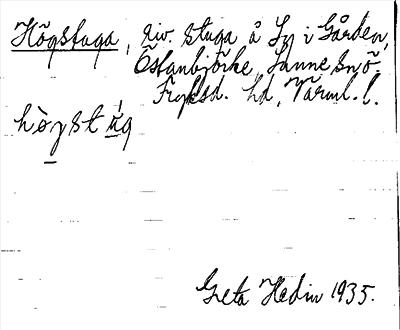 Högstuga, riv. stuga å Ly i Gården,
Östanbjörke, Sunne sn ö.
Fryksd. hd, Värml. l.
hògstu̇g
Greta Hedin 1935.